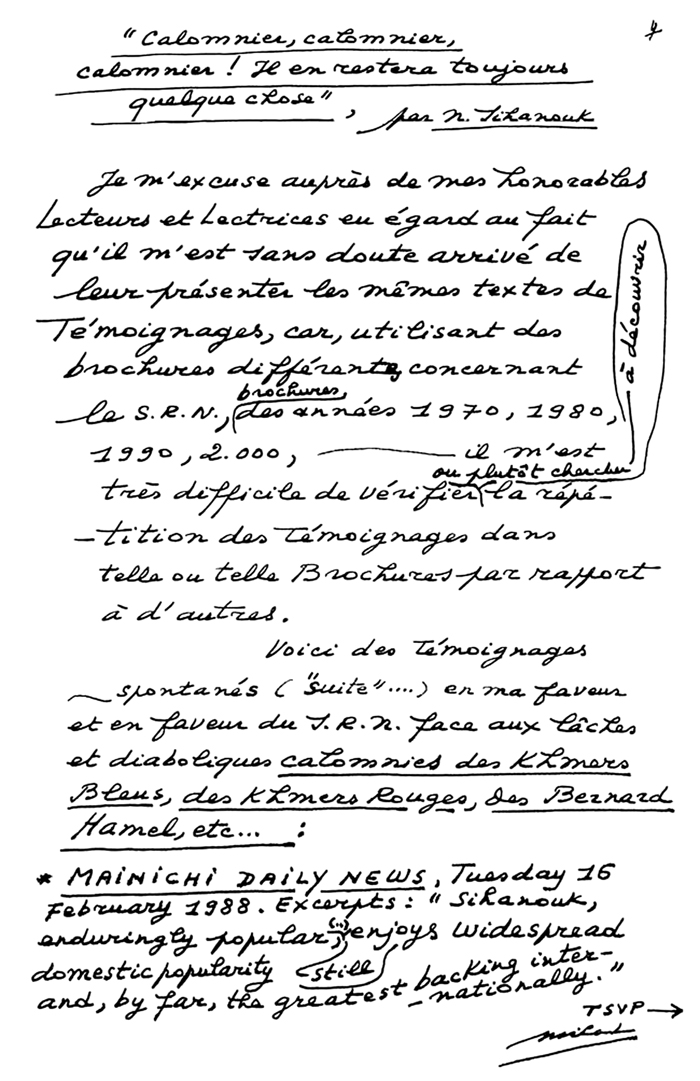 "Calomniez, calomniez,
calomniez ! Il en restera toujours
quelque chose", par N. Sihanouk
Je m'excuse auprès de mes honorables
Lecteurs et Lectrices eu égard au fait
qu'il m'est sans doute arrivé de
leur présenter les mêmes textes de
Témoignages, car, utilisant des
brochures différentes concernant
le S.R.N., (brochures, des années 1970, 1980,
1990, 2.000, il m'est
très difficile de vérifier (ou plutôt chercher à découvrir) la répé-
-tition des Témoignages dans
telle ou telle Brochures par rapport
à d'autres.
Voici des Témoignages
spontanés ("suite"....) en ma faveur
et en faveur du S.R.N. face aux lâches
et diaboliques calomnies des Khmers
Bleus, des Khmers Rouges, des Bernard
Hamel, etc... :
* MAINICHI DAILY NEWS, Tuesday 16
February 1988. Excerpts : "Sihanouk,
enduringly popular, (...) still enjoys widespread
domestic popularity
and, by far, the greatest backing inter-
-nationally."
TSVP →